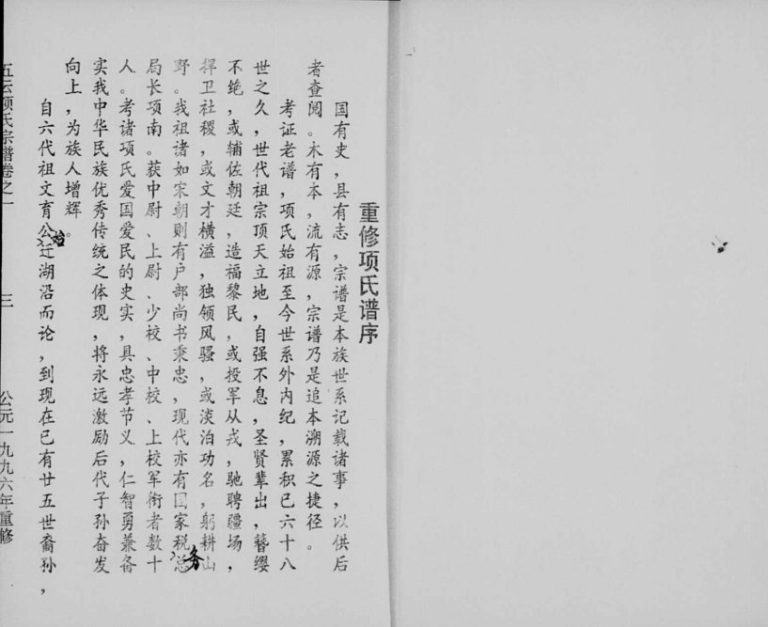 重修项氏谱序
国有史，县有志，宗谱是本族世系记载诸事，以供后
者查阅。木有本，流有源，宗谱乃是追本溯源之捷径。
考证老谱，项氏始祖至今世系外内纪，累积已六十八
世之久，世代祖宗顶天立地，自强不息，圣贤辈出，簪缨
不绝，或辅佐朝廷，造福黎民，或投军从戎，驰聘疆场，
捍卫社稷，或文才横溢，独领风骚，或淡泊功名，躬耕山
野。我祖诸如宋朝则有户部尚书秉忠，现代亦有国家税总
务
局长项南。获中尉、上尉、少校、中校、上校军衔者数十
人。考诸项氏爱国爱民的史实，具忠孝节义，仁智勇兼备
实我中华民族优秀传统之体现，将永远激励后代子孙奋发
向上，为族人增辉。
自六代祖文育公迁湖沿而论，到现在已有廿五世裔孙，
始
五云项氏宗谱卷之一
三
公元一九九六年重修